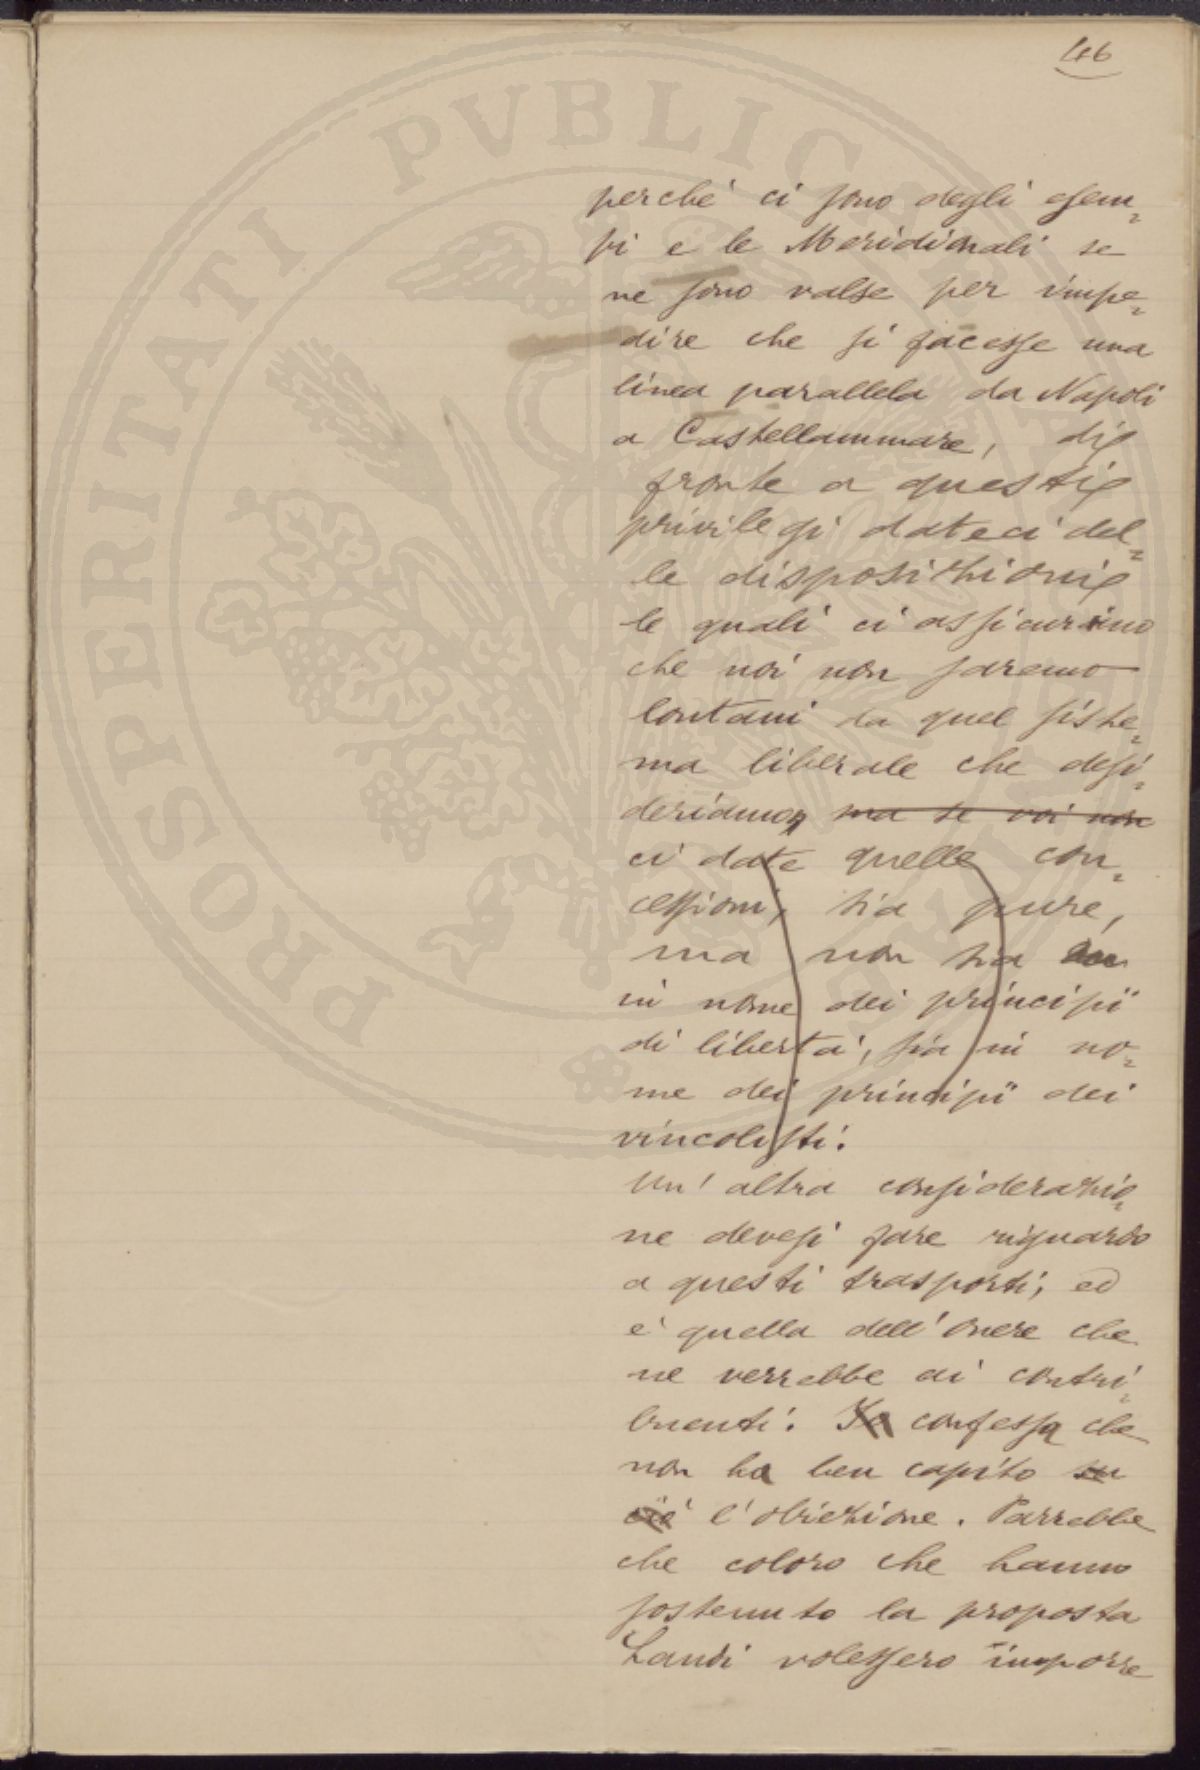 46
perchè ci sono degli esem=
pi e le Meridionali se
ne sono valse per impe=
dire che si facesse una
linea parallela da Napoli
a Castellammare, di
fronte a questi
privilegi dateci del=
le disposizioni
le quali ci assicurino
che noi non saremo
lontani da quel siste=
ma liberale che desi=
deriamo, ma se voi non
ci date quelle con=
cessioni, sia pure,
ma non sia
in nome dei principii
di libertà, sia in no=
me dei principii dei
vincolisti.
Un' altra considerazio=
ne devesi fare riguardo
a questi trasporti, ed
è quella dell'onere che
ne verrebbe ai contri=
buenti. Io confessa che
non ha ben capito su
ciò l'obiezione. Parrebbe
che coloro che hanno
sostenuto la proposta
Landi volessero imporre
PROSPERITATI PVBLICAE